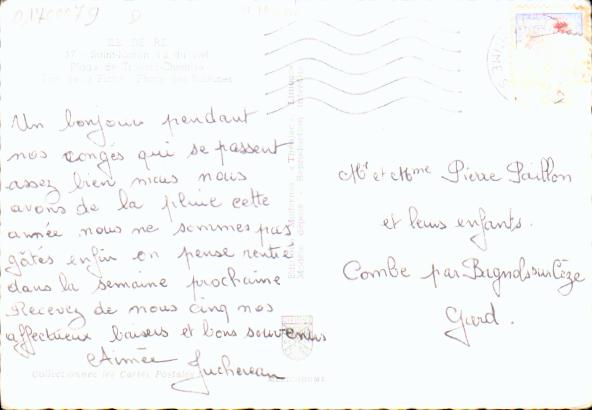 01700079
ILE DE RE
Un bonjour pendant
nos congés qui se passent
assez bien mais nous
avons de la pluie cette
année nous ne sommes pas
gâtés enfin on pense rentrer
dans la semaine prochaine
Recevez de nous cinq nos
affectueux baisers et bons souvenirs
Aimée Juchereau
Collectionnez les Cartes Postales
Mr et Mme Pierre Paillon
et leurs enfants.
Combe par Bagnols sur Cèze
Gard.